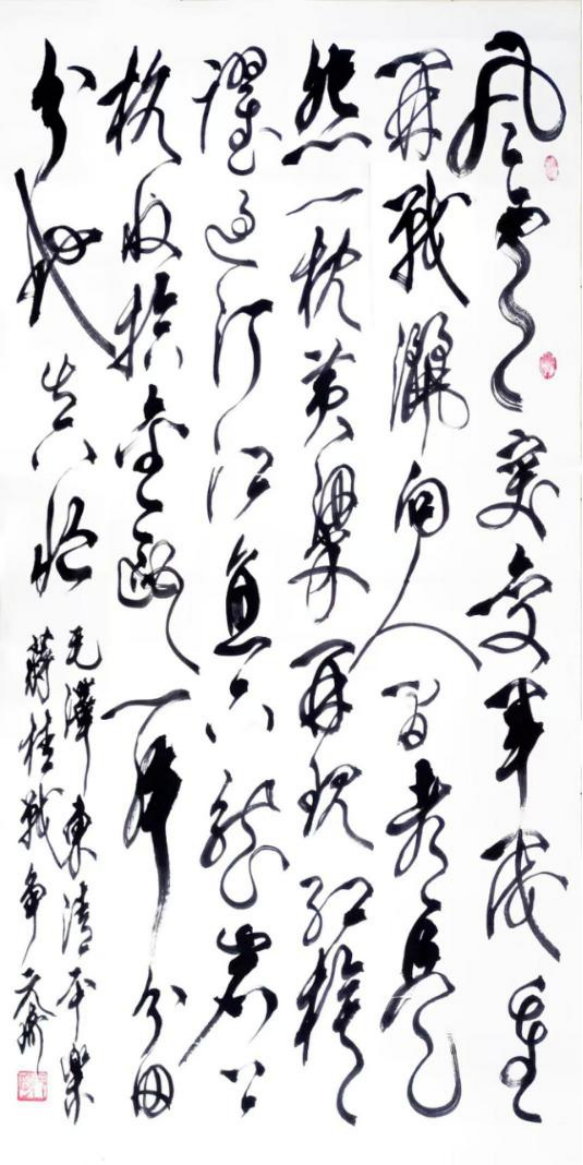 风云突变军阀重
开戰灑向人间都是
怨一枕黄粱再现红旗
躍过汀江直下龙岩上
杭收拾金瓯一片分田
分地真忙
毛澤東清平樂
蔣桂戰争